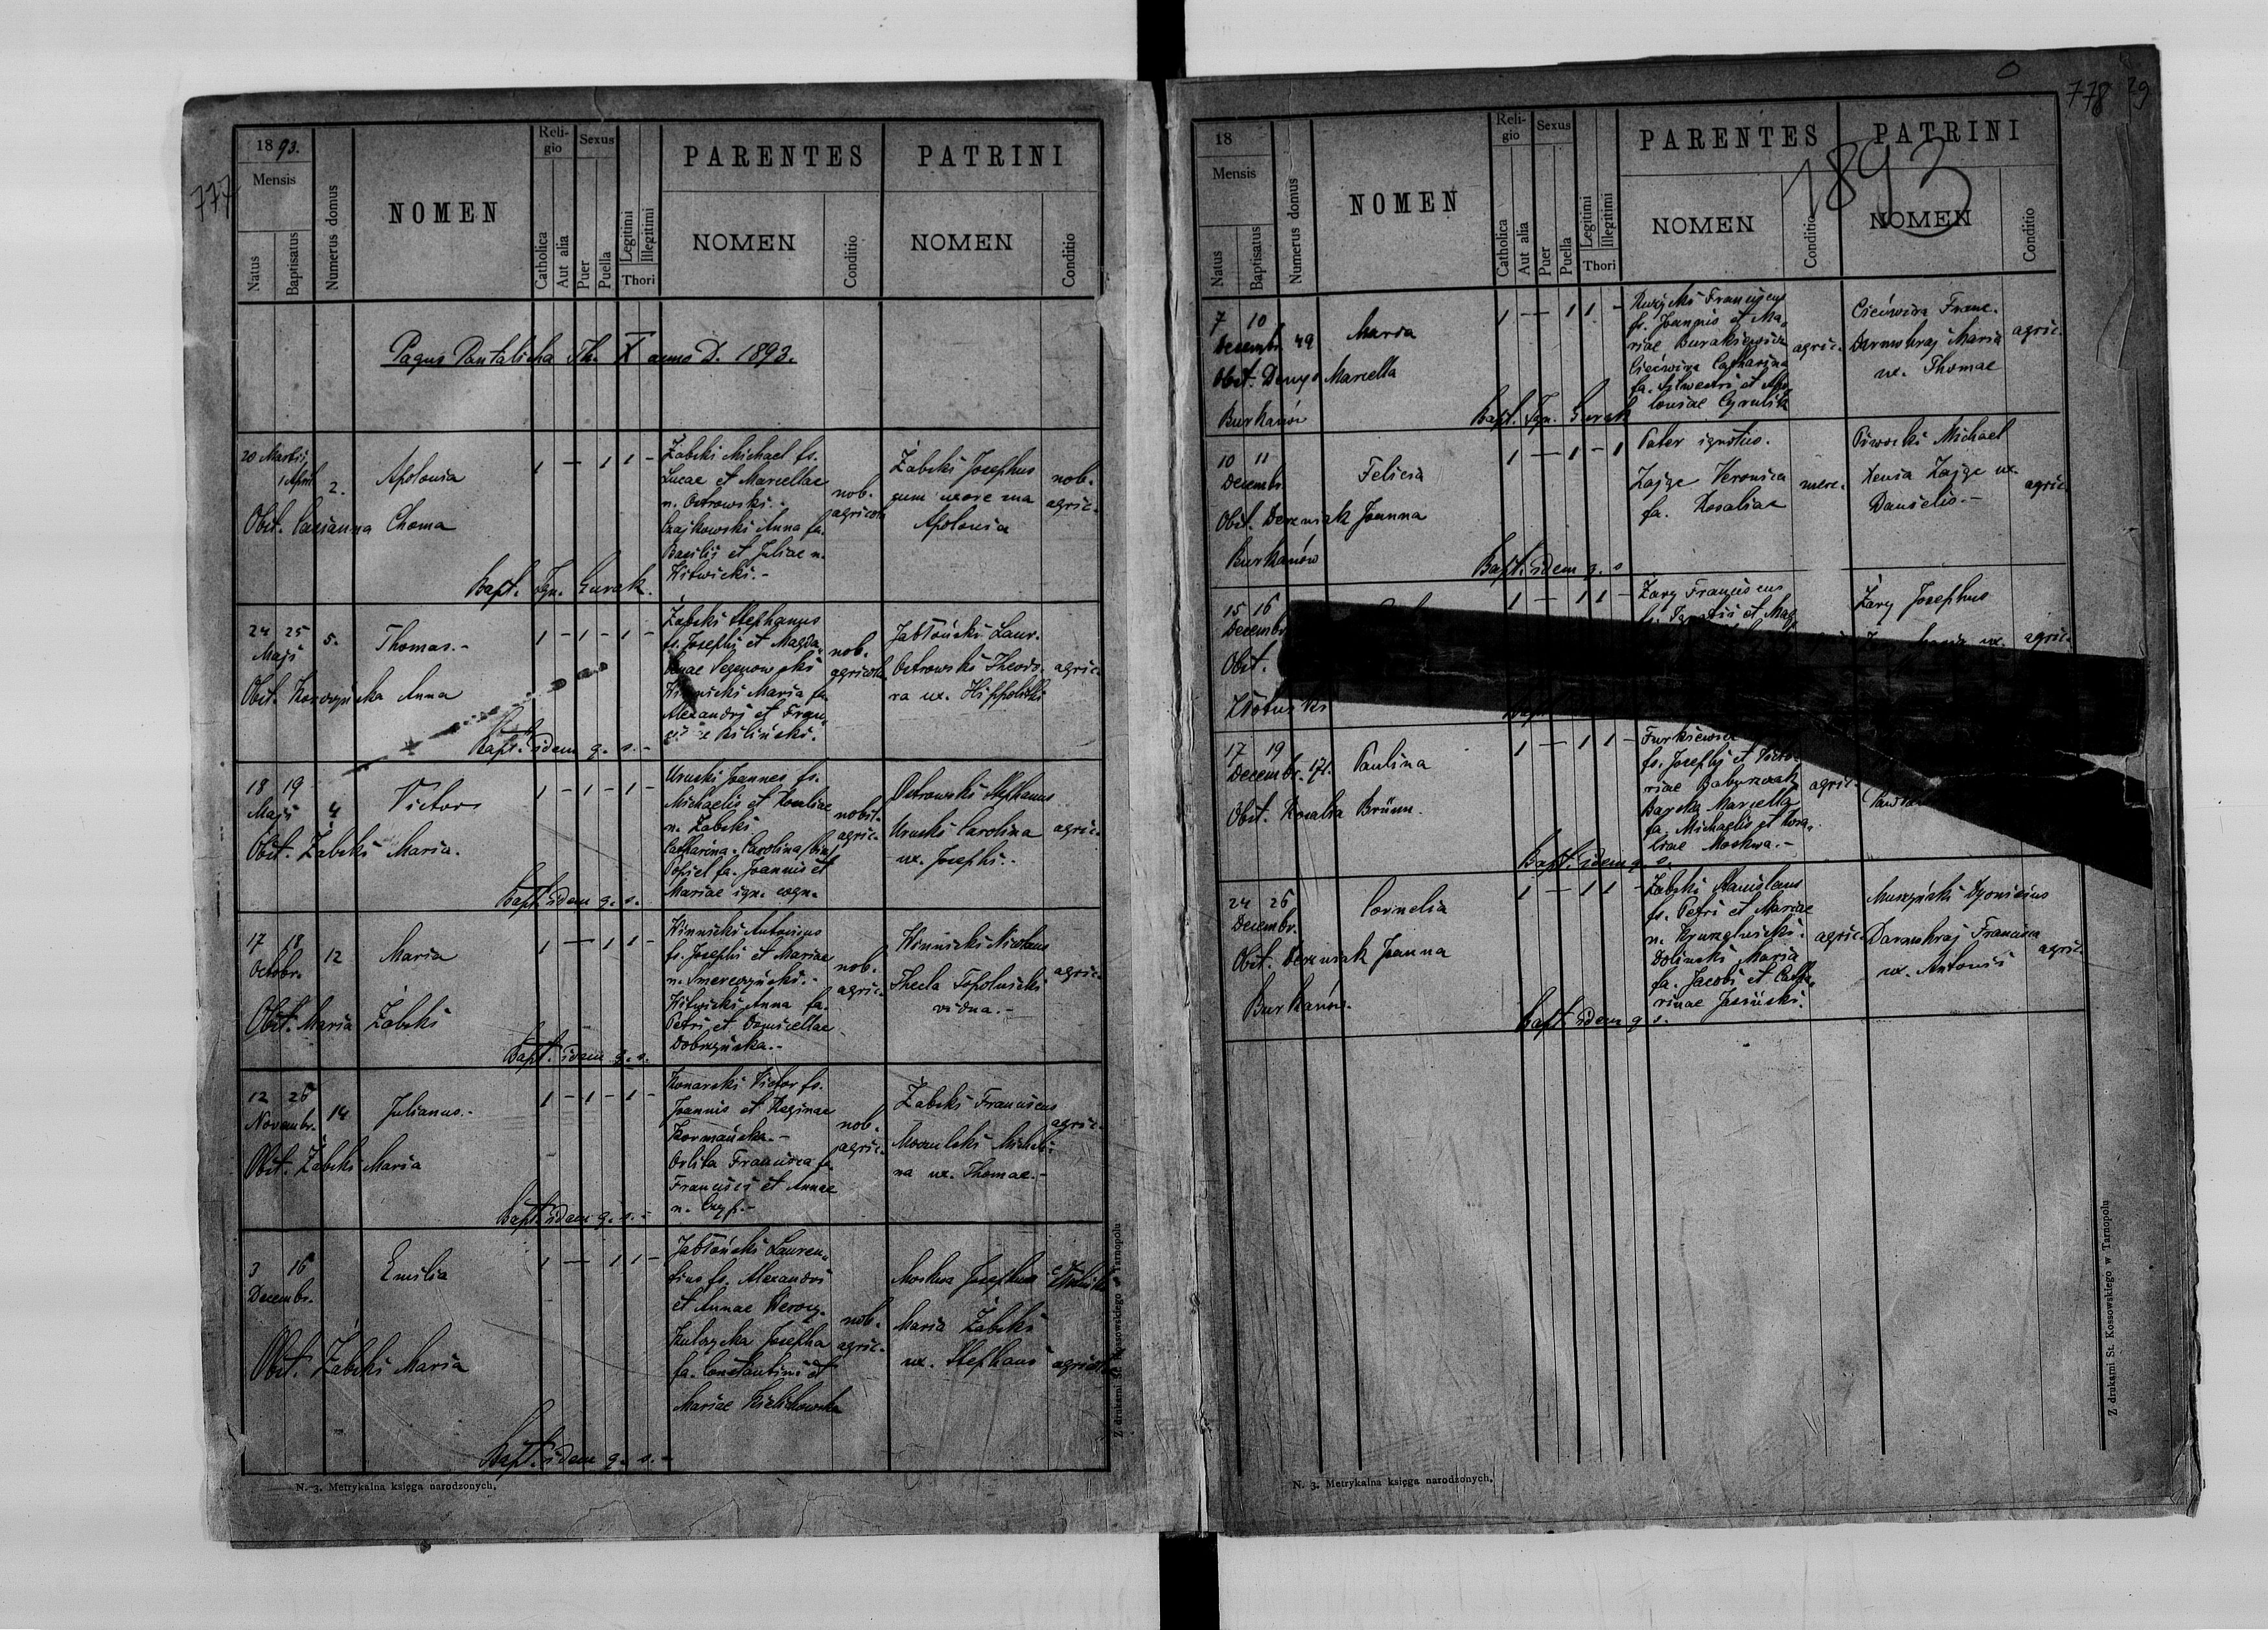 777
1893.
Mensis
Natus
Baptisatus
Numerus domus
NOMEN
Religio
Catholica
Aut alia
Sexus
Puer
Puella
Legitimi
Illegitimi
Thori
PARENTES
NOMEN
Conditio
PATRINI
NOMEN
Conditio
Pagus Pantalicha Th. X anno D. 1893.
20 Martii
1 April 2.
Apolonia
1 — 1 1 —
Obst. Marianna Choma
Żabski Michael fs.
Lucae et Marcellae
n. Ostrowski.-
Czajkowski Anna fa.
Basilii et Juliae n.
Witwicki.-
nob.
agricola
Żabski Josephus
cum uxore sua
Apolonia
nob.
agric.
Bapt. Ign. Gurak.
24 25
Maji
5.
Thomas.-
1 - 1 - 1 -
Obst. Anna
Żabski Stephanus
fs. Josephi et Magda-
lenae
Winnicki Maria fa.
Alexandri et Fran-
Biliński.
nob.
agricola
Jabłoński Laur.
Ostrowski Theodo-
ra ux. Hippoliti
agric.
Bapt. idem q. s.-
18 19
Maji
4
Victor
1 - 1 - 1 -
Obst. Żabski Maria.
Uruski Joannes fs.
Michaelis et Rosaliae
n. Żabski
Catharina-Carolina
Popiel fa. Joannis et
Mariae ign. cogn.
nobil.
agric.
Ostrowski Stephanus
Uruski Carolina
ux. Josephi.-
agric.
Bapt. idem q. s.
17 18
Octobr.
12
Maria
1 — 1 1 —
Obst. Maria Żabski
Winnicki Antonius
fs. Josephi et Mariae
n.
Witwicki Anna fa.
Petri et Domicellae
Dobrzyńska.-
nob.
agric.
Winnicki Nicolaus
Thecla Topolnicki
vidua.-
agric.
Bapt. idem q. s.
12 26
Novembr. 14
Julianus.-
1 - 1 - 1 -
Obst. Żabski Maria
Konarski Victor fs.
Joannis et Reginae
Kormańska.-
Orlita Francisca fa.
Francisci et Annae
n. Czyp.-
nob.
agric.
Żabski Franciscus
Micheli-
na ux. Thomae.-
agric.
Bapt. idem q. s.-
3 16
Decembr.
Emilia
1 — 1 1 —
Obst. Żabski Maria
Jabłoński Lauren-
tius fs. Alexandri
et Annae
Kulczycka Josepha
fa. Constantini et
Mariae
nob.
agric.
Moskwa Josephus
Maria Żabski
ux. Stephani
agricola
Bapt. idem q. s.-
N. 3. Metrykalna księga narodzonych.
Z drukarni St. Kossowskiego w Tarnopolu
778 29
18
Mensis
Natus
Baptisatus
Numerus domus
NOMEN
Religio
Catholica
Aut alia
Sexus
Puer
Puella
Legitimi
Illegitimi
Thori
PARENTES
NOMEN
Conditio
PATRINI
1893
NOMEN
Conditio
7 10
Decembr. 49
Maria
1 — 1 1 —
Obst. Marcella
Burkanów
Franciscus
fs. Joannis et Ma-
riae Burakiewicz
Ciećwira Catharina
fa. Sylwestri et Apo-
loniae Cyrulik
agric.
Ciećwira Franc.
Darmohraj Maria
ux. Thomae
agric.
Bapt. Ign. Gurak
10 11
Decembr.
Felicia
1 — 1 — 1
Obst. Dereniak Joanna
Burkanów
Pater ignotus.
Zając Veronica
fa. Rosaliae
merc.
Piwocki Michael
Xenia Zając ux.
Danielis.-
agric.
Bapt. idem q. s
15 16
Decembr.
1 — 1 1 —
Obst.
Złotniki
Żary Franciscus
Żary Josephus
agric.
17 19
Decembr. 171.
Paulina
1 — 1 1 —
Obst. Rosalia Brünn.
fs. Josephi et Victo-
riae
Barska Marcella
fa. Michaelis et Rosa-
liae Moskwa.-
agric.
Bapt. idem q. s.
24 26
Decembr.
Cornelia
1 — 1 1 —
Obst. Dereniak Joanna
Burkanów.
Żabski Stanislaus
fs. Petri et Mariae
n.
Doliński Maria
fa. Jacobi et Catha-
rinae Jasiński.
agric.
Muszyński Dyonisius
Darmohraj Francisca
ux. Antonii
agric.
Bapt. idem q s.
N. 3. Metrykalna księga narodzonych.
Z drukarni St. Kossowskiego w Tarnopolu